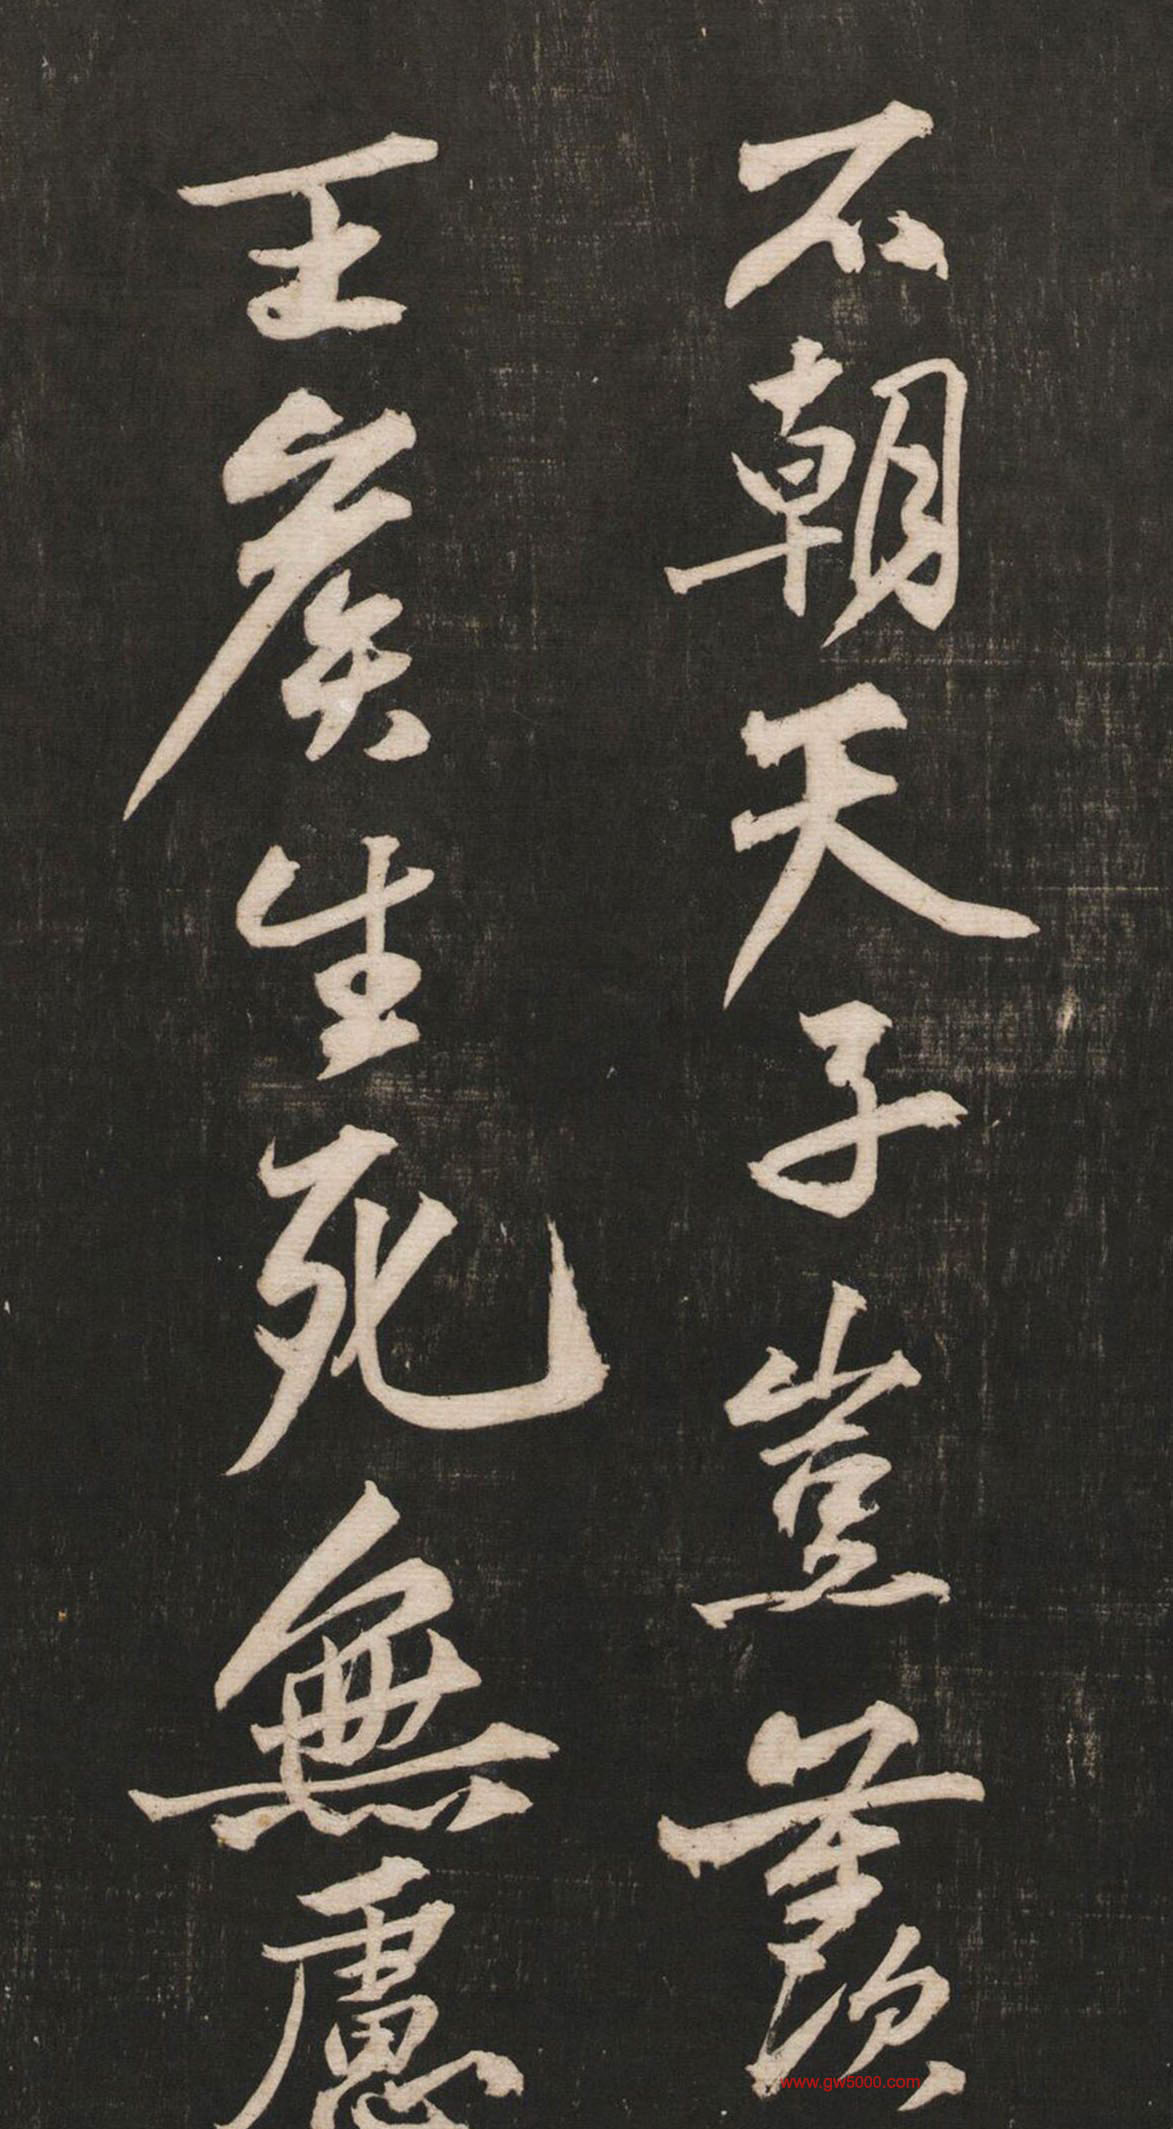 不朝天子豈羨
王侯生死無慮
www.gw5000.com